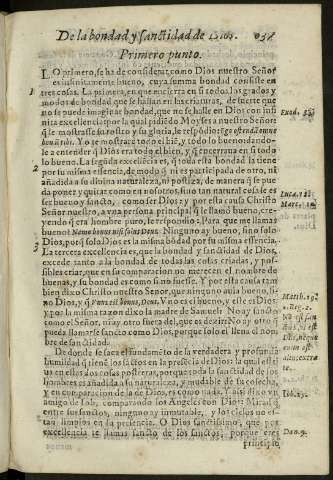 De la bondad y sanctidad de Dios.
Primero punto.
LO primero, se ha de considerar, como Dios nuestro Señor
es infinitamente bueno, cuya summa bondad consiste en
tres cosas. La primera, en que encierra en si todos los grados y
modos de bondad que se hallan en las criaturas, de suerte que
no se puede imaginar bondad, que no se halle en Dios con infi
nita excelencia: por lo qual pidiẽdo Moyses a nuestro Señor
q̃ le mostrasse su rostro y su gloria, le respõdio:
Yo te mostrarè todo el biẽ, y todo lo bueno: dando-
le a entender q̃ Dios era todo el bien, y q̃ encerraua en si todo
lo bueno. La segũda excellẽcia es, q̃ toda esta bondad la tiene
por su misma essencia, de modo q̃ ni es participada de otro, ni
añadida a su diuina naturaleza, ni postiza, de manera q̃ se pue
da poner y quitar como en nosotros, sino tan natural cosa le es
ser bueno y sancto, como ser Dios: y por esta causa Christo
Señor nuestro, a vna persona principal q̃ le llamò bueno, cre-
yendo q̃ era hombre puro, le respondio: Para que me llamas
bueno? Nemo bonus nisi solus Deus. Ninguno ay bueno, sino solo
Dios, porq̃ solo Dios es la misma bõdad por su misma essencia.
La tercera excellencia es, que la bondad y sanctidad de Dios,
excede tanto a la bondad de todas las cosas criadas, y pos-
sibles criar, que en su comparacion no merecen el nombre de
buenas, y su bondad es como si no fuesse. Y por esta causa tam
bien dixo Christo nuestro Señor, que ninguno auia bueno, si-
no Dios, y q̃ Vnus est bonus, Deus. Vno es el bueno, y este es Dios:
y por la misma razon dixo la madre de Samuel: No ay sancto
como el Señor, ni ay otro fuera del, que es dezir: No ay otro q̃
pueda llamarse sancto como Dios, porque solo el llena el nom
bre de sanctidad.
De donde se saca el fundamẽto de la verdadera y profunda
humildad q̃ tienẽ los sanctos en la presẽcia de Dios:
us en estas dos cosas postreras, porque toda la sanctidad de los
hombres es añadida a su naturaleza, y mudable de su cosecha,
y en comparacion de la de Dios, es como nada. Y assi dixo vn
amigo de Iob, comparando los Angeles con Dios: Mira q̃
entre sus sanctos, ninguno ay inmutable, y los cielos no es-
tan limpios en su presencia. O Dios sanctissimo, que por
excellencia te llamas sancto de los sanctos, porque eres
principio
1
2
3
Exod. 33.
Luc. 18.
Matth. 19.
1. Reg. 2.
Iob. 15.
Dan. 9.